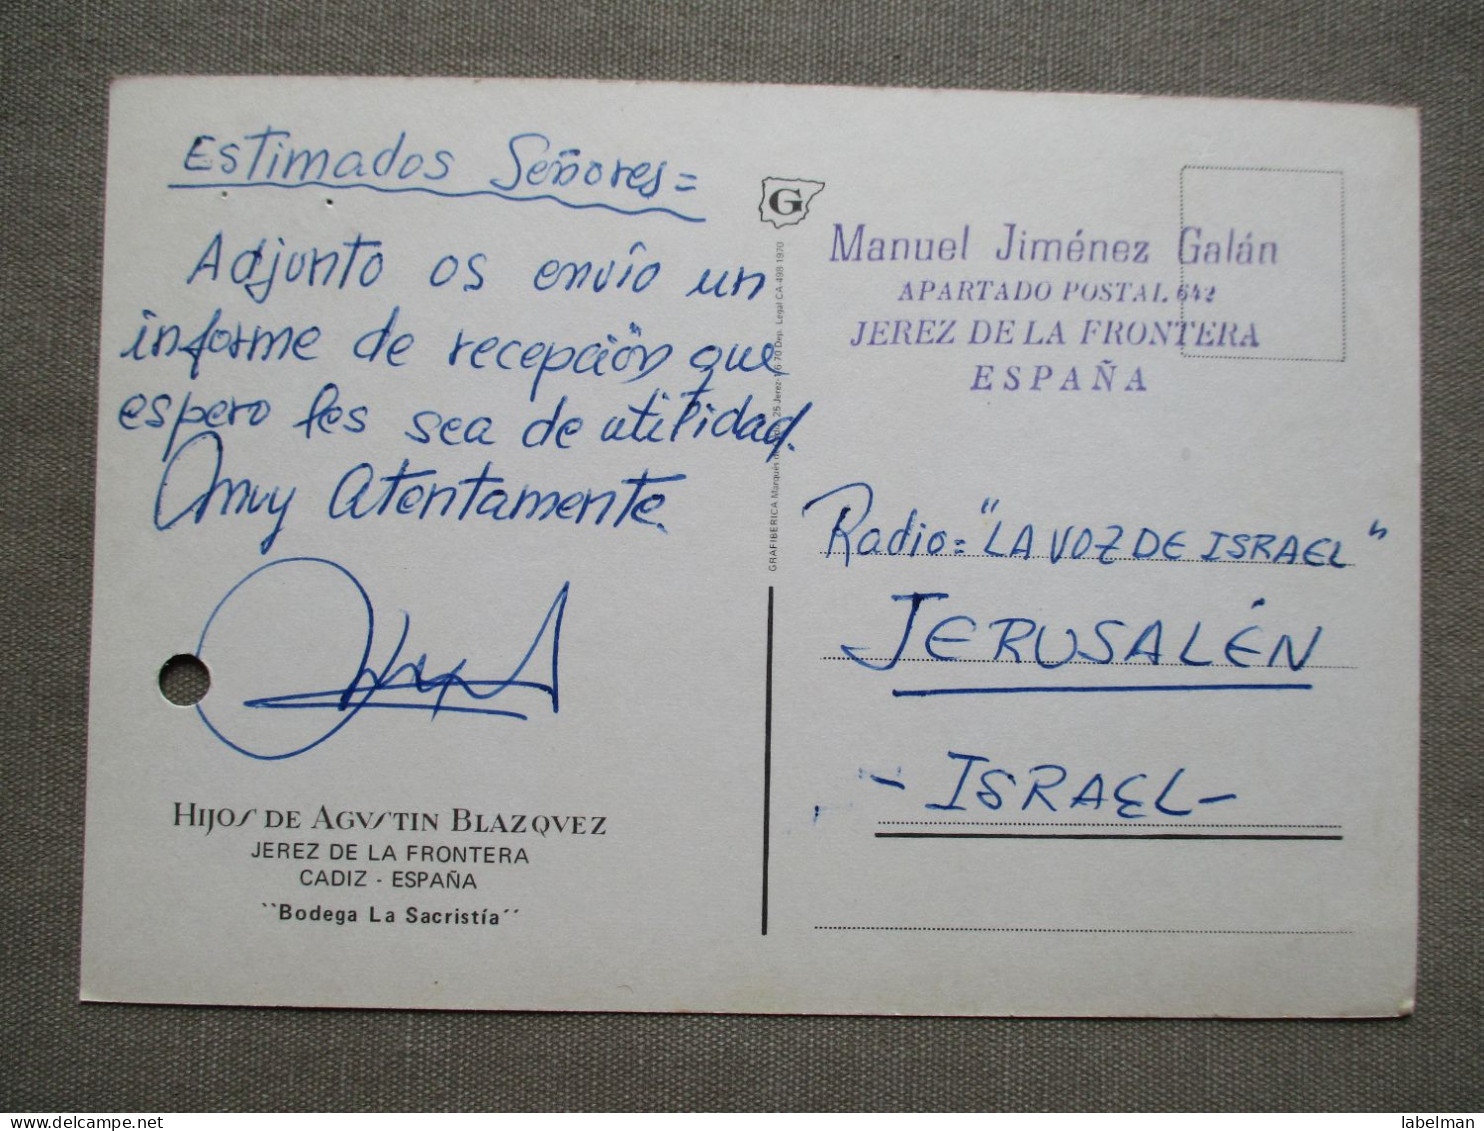 Estimados Señores=
Adjunto os envío un
informe de recepción que
espero les sea de utilidad.
muy atentamente.
HIJOS DE AGVSTIN BLAZQVEZ
JEREZ DE LA FRONTERA
CADIZ - ESPAÑA
``Bodega La Sacristía´´
G
GRAFIBERICA Marqués
25 Jerez-1-6-70 Dep. Legal CA-498 1970
Manuel Jiménez Galán
APARTADO POSTAL 642
JEREZ DE LA FRONTERA
ESPAÑA
Radio= "LA VOZ DE ISRAEL"
JERUSALÉN
- ISRAEL -
delcampe.net
labelman